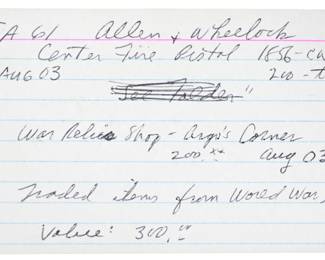 TA 61 Allen & Wheelock
Center Fire Pistol 1856-ca
AUG 03 200-t
"See Folder"
War Relics Shop - Argo's Corner
200.xx Aug 03
Traded items from World War
Value: 300.00